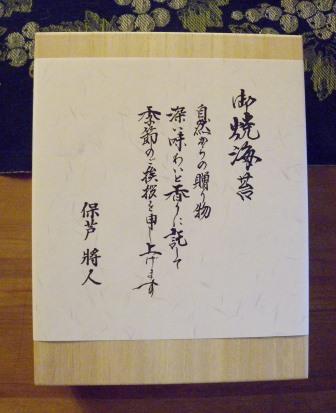 御焼海苔
自然からの贈り物
深い味わいと香りに託して
季節のご挨拶を申し上げます
保芦 將人